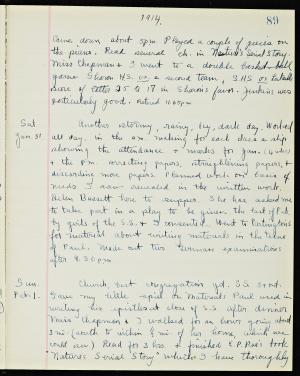 1914.
89
Came down about 5 P.M. Played a couple of pieces on
the piano. Read several ch. in Nature's Serial Story.
Miss Chapman & I went to a double basket ball
game Sharon H.S. vs. a second team,
score of 25 to 17 in Sharon's favor. Jenkins was
particularly good. Retired 10:45 P.M.
Sat.
Jan. 31
Another stormy, rainy, icy, dark day. Worked
all day, in the a.m. making for each class a slip
showing the attendance & marks for Jan. (4 wks)
& the P.M. correcting papers, straightening papers, &
discarding more papers. Planned work on basis of
needs I saw revealed in the written work.
Helen Bussett here to supper. She has asked me
to take part in a play to be given the last of Feb.
by girls of the S.S. & I consented. Went to
for material about writing materials in the time
of Paul. Made out two German examinations
after 8:30 P.M.
Sun.
Feb. 1.
Church, best congregation yet. S.S. good.
Gave my little on Materials Paul used in
writing his epistles at close of S.S. After dinner
Miss Chapman & I walked for an hour and about
3 mi. (south to within ½ mi. of her home, which we
could see) Read for 3 hrs. & finished E.P. Roe's book
"Nature's Serial Story" which I have thoroughly